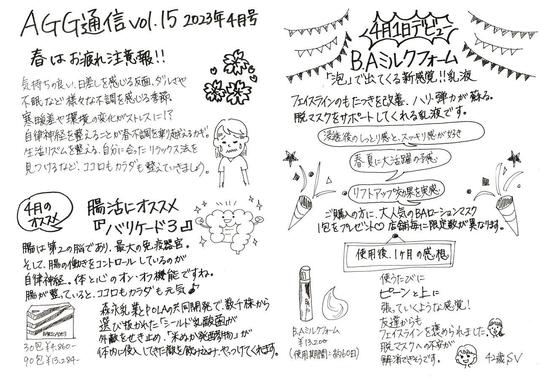 AGG通信 vol.15 2023年4月号
春はお疲れ注意報!!
気持ちの良い、日差しを感じる反面、ダルさや
不眠など様々な不調を感じる季節。
寒暖差や環境の変化がストレスに!?
自律神経を整えることが春不調を乗り越えるカギ。
生活リズムを整える、自分に合ったリラックス法を
見つけるなど、ココロもカラダも整えていきましょう。
4月の
オススメ
腸活にオススメ
『バリケード3』
腸は第二の脳であり、最大の免疫器官。
そして、腸の働きをコントロールしているのが
自律神経。体と心のオン・オフ機能ですね。
腸が整っていると、ココロもカラダも元気♪
森永乳業とPOLAの共同開発で数千株から
選び抜かれた「シールド乳酸菌」が
外敵をせき止め、「米ぬか発酵物」が
体内に侵入してきた敵を飲み込み、やっつけてくれます。
30包 ¥4,860-
90包 ¥13,284-
4月1日デビュー
B.Aミルクフォーム
「泡」で出てくる新感覚!!乳液
フェイスラインのもたつきを改善、ハリ・弾力が蘇る。
脱マスクをサポートしてくれる乳液です。
浸透後のしっとり感と、スッキリ感が好き
春夏に大活躍の予感
リフトアップ効果を実感
ご購入の方に、大人気のBAローションマスク
1包をプレゼント♡ 店舗毎に限定数が異なります。
使用後、1ヶ月の感想
使うたびに
ピーンと上に
張っていくような感覚!
友達からも
フェイスラインを褒められました
脱マスクへの不安が
解消できそうです。
42歳SV
B.Aミルクフォーム
¥13,200
(使用期間:約60日)